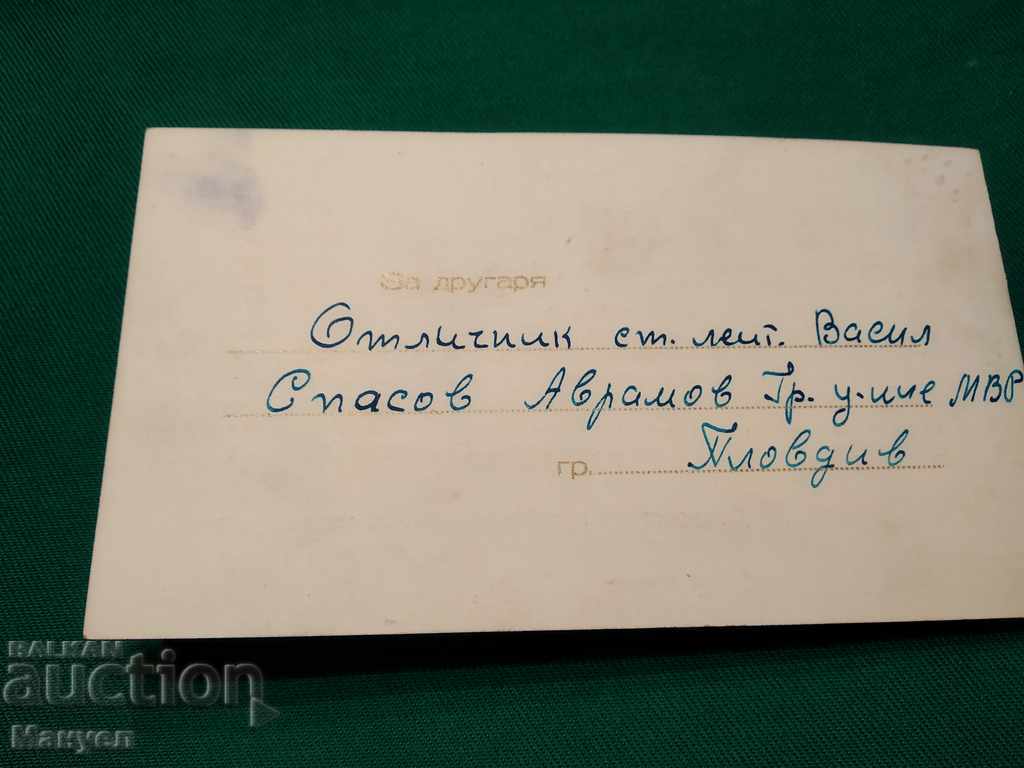 За другаря
Отличник ст. лейт. Васил
Спасов Аврамов Гр. у-ние МВР
гр. Пловдив
BALKAN
auction
Макуел